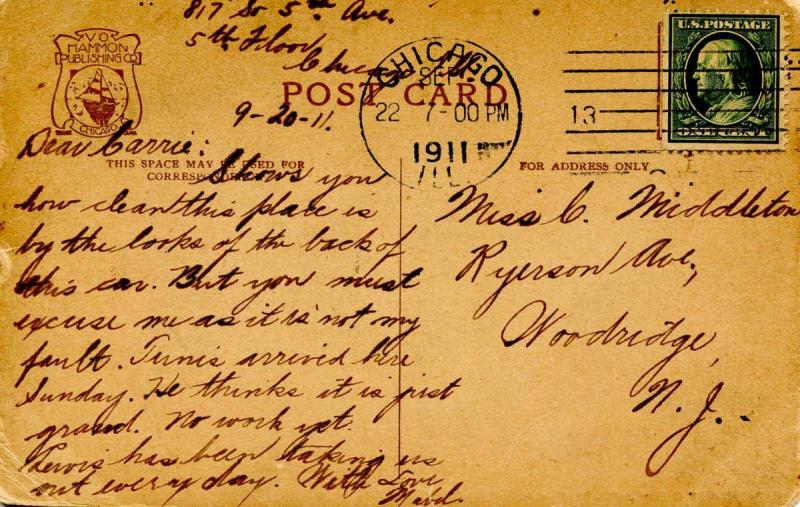 817 So 5th Ave.
5th Floor
Chicago
9-20-11.
V.O.
HAMMON
PUBLISHING CO
CHICAGO
POST CARD
CHICAGO
SEP
22 7-00 PM
1911
ILL.
13
U.S. POSTAGE
ONE CENT
THIS SPACE MAY BE USED FOR
CORRESPONDENCE
FOR ADDRESS ONLY
Dear Carrie:
Shows you
how clean this place is
by the looks of the back of
this car. But you must
excuse me as it is not my
fault. Tunis arrived here
Sunday. He thinks it is just
grand. No work yet.
Lewis has been taking us
out every day. With Love
Mabel
Miss C. Middleton
Ryerson Ave.,
Woodridge,
N. J.